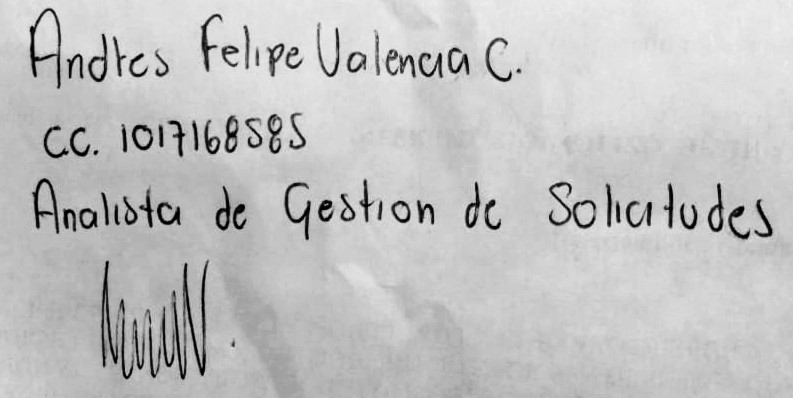 Andres Felipe Valencia C.
C.C. 1017168585
Analista de Gestion de Solicitudes